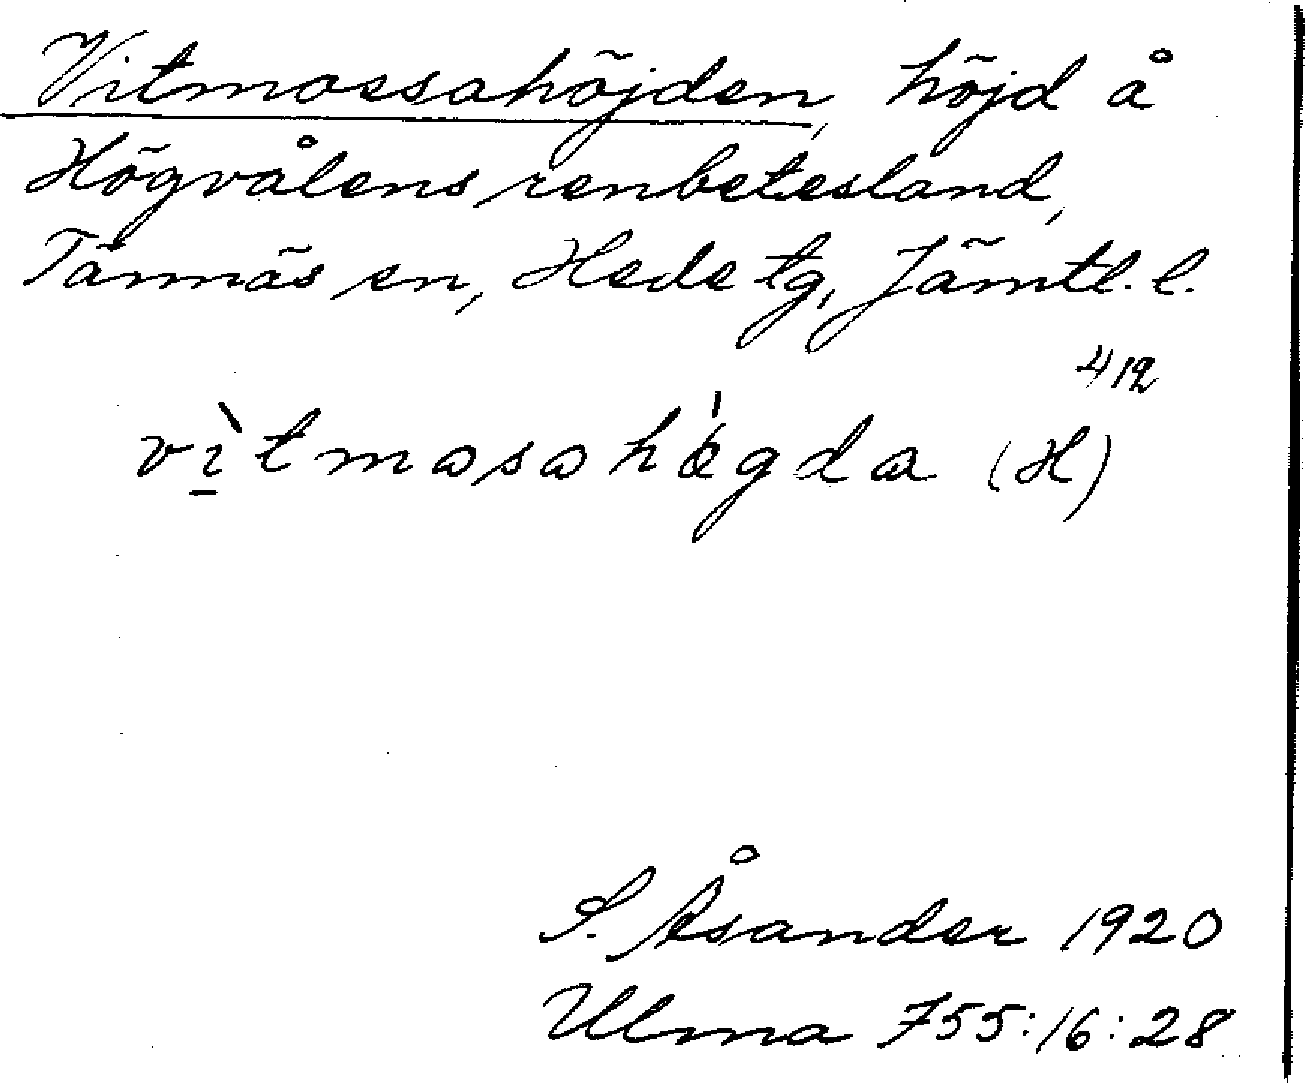 Vitmossahöjden, höjd å
Högvålens renbetesland,
Tännäs sn, Hede tg, Jämtl. l.
412
vìtmosohǿgda (H)
S. Åsander 1920
Ulma 755:16:28